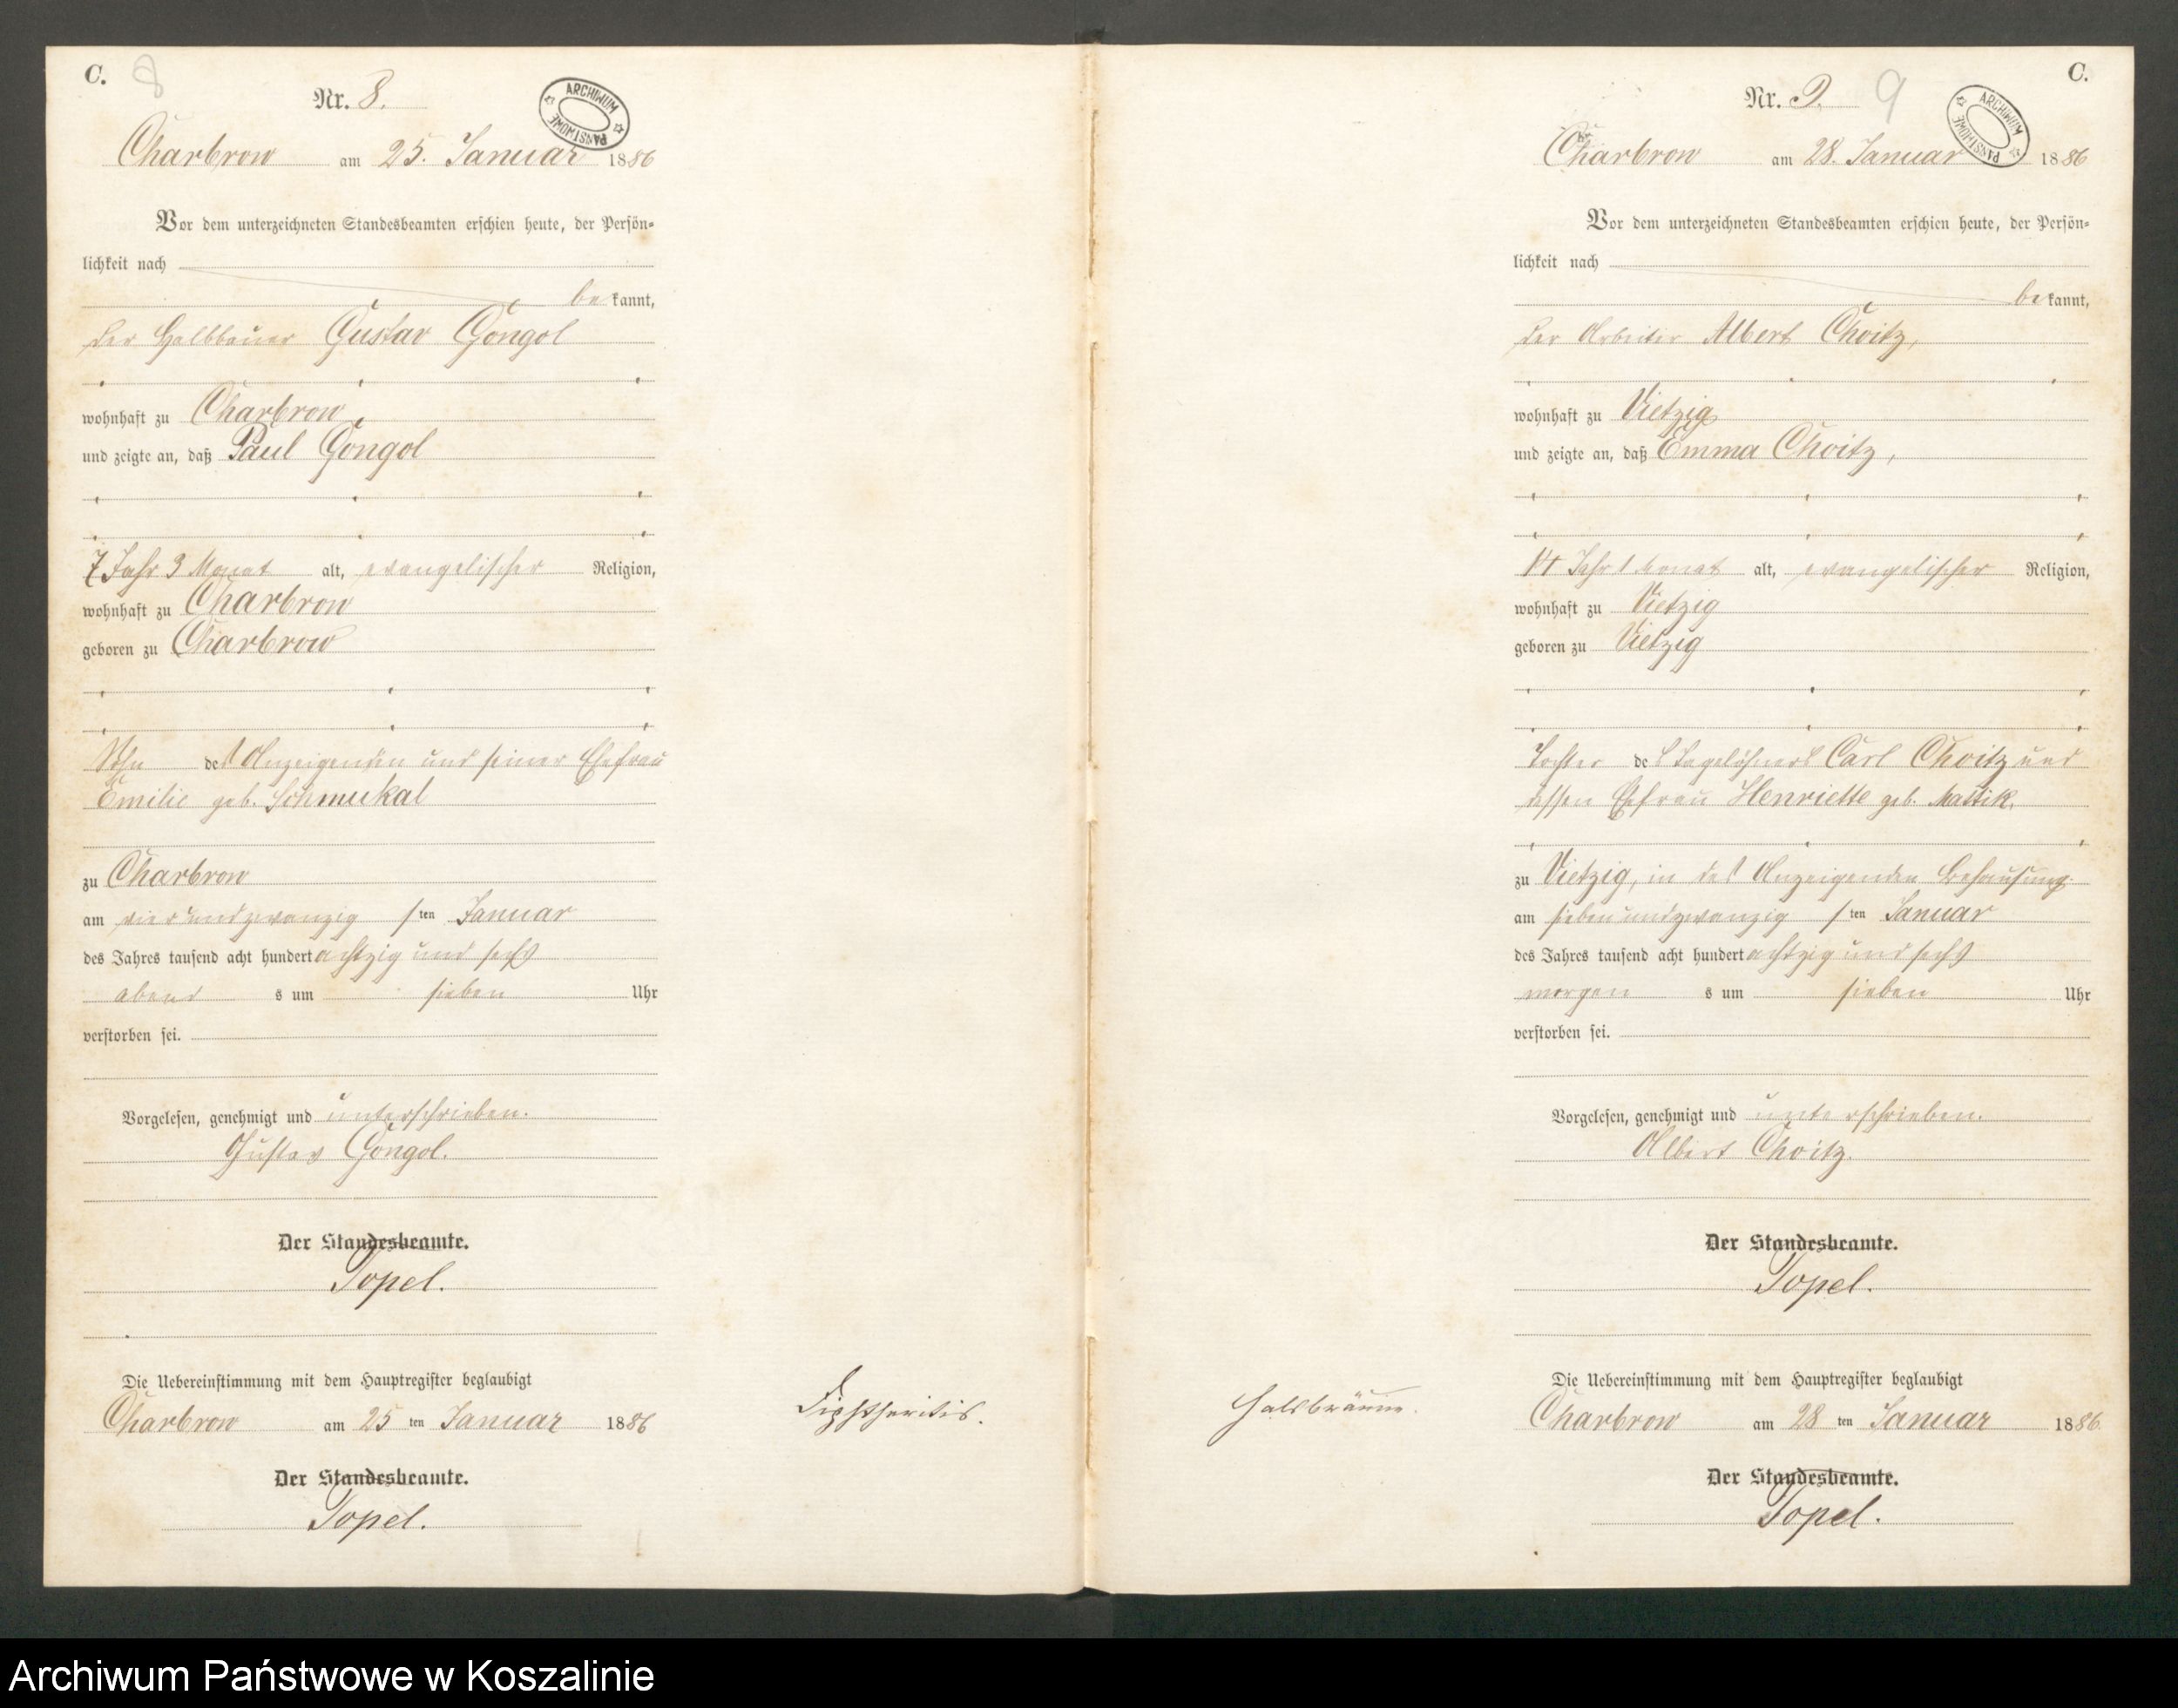 C.
8
Nr. 8.
ARCHIWUM PAŃSTWOWE
Charbrow am 25. Januar 1886
Vor dem unterzeichneten Standesbeamten erschien heute, der Persön-
lichkeit nach
bekannt,
der Halbbauer Gustav Gongol
wohnhaft zu Charbrow,
und zeigte an, daß Paul Gongol
7 Jahr 3 Monat alt, evangelischer Religion,
wohnhaft zu Charbrow
geboren zu Charbrow
Sohn des Anzeigenden und seiner Ehefrau
Emilie geb. Schmukal
zu Charbrow
am vierundzwanzigsten Januar
des Jahres tausend acht hundert achtzig und sechs
abends um sieben Uhr
verstorben sei.
Vorgelesen, genehmigt und unterschrieben.
Gustav Gongol.
Der Standesbeamte.
Topel.
Die Uebereinstimmung mit dem Hauptregister beglaubigt
Charbrow am 25ten Januar 1886
Der Standesbeamte.
Topel.
Diphtheritis.
C.
Nr. 9.
9
ARCHIWUM PAŃSTWOWE
Charbrow am 28. Januar 1886
Vor dem unterzeichneten Standesbeamten erschien heute, der Persön-
lichkeit nach
bekannt,
der Arbeiter Albert Choitz,
wohnhaft zu Vietzig
und zeigte an, daß Emma Choitz,
14 Jahr 1 Monat alt, evangelischer Religion,
wohnhaft zu Vietzig
geboren zu Vietzig
Tochter des Tagelöhners Carl Choitz und
dessen Ehefrau Henriette geb. Mattik,
zu Vietzig, in des Anzeigenden Behausung
am siebenundzwanzigsten Januar
des Jahres tausend acht hundert achtzig und sechs
morgens um sieben Uhr
verstorben sei.
Vorgelesen, genehmigt und unterschrieben.
Albert Choitz.
Der Standesbeamte.
Topel.
Die Uebereinstimmung mit dem Hauptregister beglaubigt
Charbrow am 28ten Januar 1886.
Der Standesbeamte.
Topel.
Halsbräune.
Archiwum Państwowe w Koszalinie